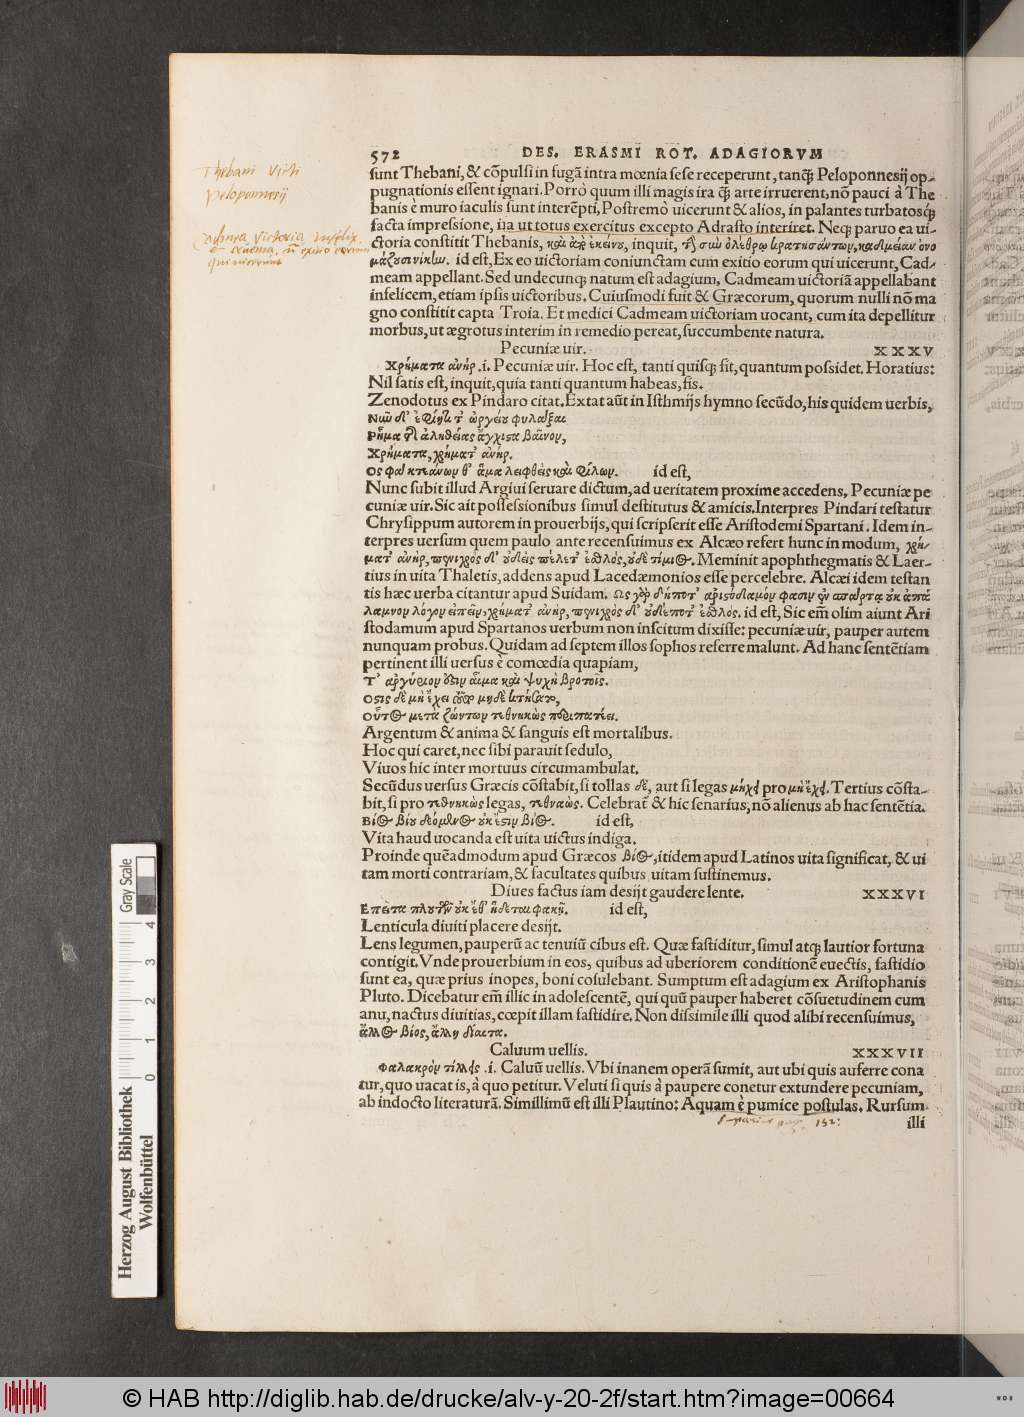 572 DES. ERASMI ROT. ADAGIORVM
Thebani Victi
Peloponnesij
sunt Thebani, & cōpulsi in fugā intra mœnia sese receperunt, tanq̃ Peloponnesij op-
pugnationis essent ignari. Porrò quum illi magis ira q̃ arte irruerent, nō pauci à The
banis è muro iaculis sunt interēpti, Postremò uicerunt & alios, in palantes turbatosq́;
facta impressione, ita ut totus exercitus excepto Adrasto interiret. Neq; paruo ea ui-
Cadmea Victoria infelix
ctoria constitit Thebanis, καὶ ἀπ᾽ ἐκείνου, inquit, τὴν σὺν ὀλέθρῳ κρατησάντων, καδμείαν ὀνο
μάζουσι νίκην. id est, Ex eo uictoriam coniunctam cum exitio eorum qui uicerunt, Cad-
meam appellant. Sed undecunq; natum est adagium, Cadmeam uictoriā appellabant
infelicem, etiam ipsis uictoribus. Cuiusmodi fuit & Græcorum, quorum nulli nō ma
gno constitit capta Troia. Et medici Cadmeam uictoriam uocant, cum ita depellitur
morbus, ut ægrotus interim in remedio pereat, succumbente natura.
Pecuniæ uir. XXXV
Χρήματα ἀνήρ .i. Pecuniæ uir. Hoc est, tanti quisq; sit, quantum possidet. Horatius:
Nil satis est, inquit, quia tanti quantum habeas, sis.
Zenodotus ex Pindaro citat. Extat aūt in Isthmijs hymno secūdo, his quidem uerbis,
Νῦν δ᾽ ἐφίητι τ᾽ ὠργείου φυλάξαι
Ρῆμα τῆς ἀληθείας ἄγχιστα βαῖνον,
Χρήματα, χρήματ᾽ ἀνήρ.
Ος φᾶ κτεάνων θ᾽ ἅμα λειφθεὶς καὶ φίλων. id est,
Nunc subit illud Argiui seruare dictum, ad ueritatem proxime accedens, Pecuniæ pe
cuniæ uir. Sic ait possessionibus simul destitutus & amicis. Interpres Pindari testatur
Chrysippum autorem in prouerbijs, qui scripserit esse Aristodemi Spartani. Idem in-
terpres uersum quem paulo ante recensuimus ex Alcæo refert hunc in modum, χρή-
ματ᾽ ἀνὴρ, πενιχρὸς δ᾽ οὐδεὶς πέλετ᾽ ἐσθλός, οὐδὲ τίμιος. Meminit apophthegmatis & Laer-
tius in uita Thaletis, addens apud Lacedæmonios esse percelebre. Alcæi idem testan
tis hæc uerba citantur apud Suidam. Ως γὰρ δήποτ᾽ ἀριστόδαμόν φασιν ἐν σπάρτᾳ οὐκ ἀπά
λαμνον λόγον εἰπεῖν, χρήματ᾽ ἀνὴρ, πενιχρὸς δ᾽ οὐδέποτ᾽ ἐσθλός. id est, Sic em̄ olim aiunt Ari
stodamum apud Spartanos uerbum non inscitum dixisse: pecuniæ uir, pauper autem
nunquam probus. Quidam ad septem illos sophos referre malunt. Ad hanc sentētiam
pertinent illi uersus è comœdia quapiam,
Τ᾽ ἀργύριον ὅστιν αἷμα καὶ ψυχὴ βροτοῖς.
Οστις δὲ μὴ ἔχει τοῦτο μηδὲ ἐκτήσατο,
Οὗτος μετὰ ζώντων τεθνηκὼς περιπατεῖ.
Argentum & anima & sanguis est mortalibus.
Hoc qui caret, nec sibi parauit sedulo,
Viuos hic inter mortuus circumambulat.
Secūdus uersus Græcis cōstabit, si tollas δὲ, aut si legas μήχῃ pro μὴ ἔχῃ. Tertius cōsta-
bit, si pro τεθνηκὼς legas, τεθνεώς. Celebrat̃ & hic senarius, nō alienus ab hac sentētia.
Βίος βίου δεόμενος οὐκ ἔστιν βίος. id est,
Vita haud uocanda est uita uictus indiga.
Proinde quēadmodum apud Græcos βίος, itidem apud Latinos uita significat, & ui
tam morti contrariam, & facultates quibus uitam sustinemus.
Diues factus iam desijt gaudere lente. XXXVI
Επειτα πλουτῶν οὐκ ἔθ᾽ ἥδεται φακῇ. id est,
Lenticula diuiti placere desijt.
Lens legumen, pauperū ac tenuiū cibus est. Quæ fastiditur, simul atq; lautior fortuna
contigit. Vnde prouerbium in eos, quibus ad uberiorem conditionē euectis, fastidio
sunt ea, quæ prius inopes, boni cōsulebant. Sumptum est adagium ex Aristophanis
Pluto. Dicebatur em̄ illic in adolescentē, qui quū pauper haberet cōsuetudinem cum
anu, nactus diuitias, cœpit illam fastidire. Non dissimile illi quod alibi recensuimus,
ἄλλος βίος, ἄλλη δίαιτα.
Caluum uellis. XXXVII
Φαλακρὸν τίλλεις .i. Caluū uellis. Vbi inanem operā sumit, aut ubi quis auferre cona
tur, quo uacat is, à quo petitur. Veluti si quis à paupere conetur extundere pecuniam,
ab indocto literaturā. Simillimū est illi Plautino: Aquam è pumice postulas. Rursum
illi
Gray Scale
0 1 2 3 4
Herzog August Bibliothek
Wolfenbüttel
© HAB http://diglib.hab.de/drucke/alv-y-20-2f/start.htm?image=00664